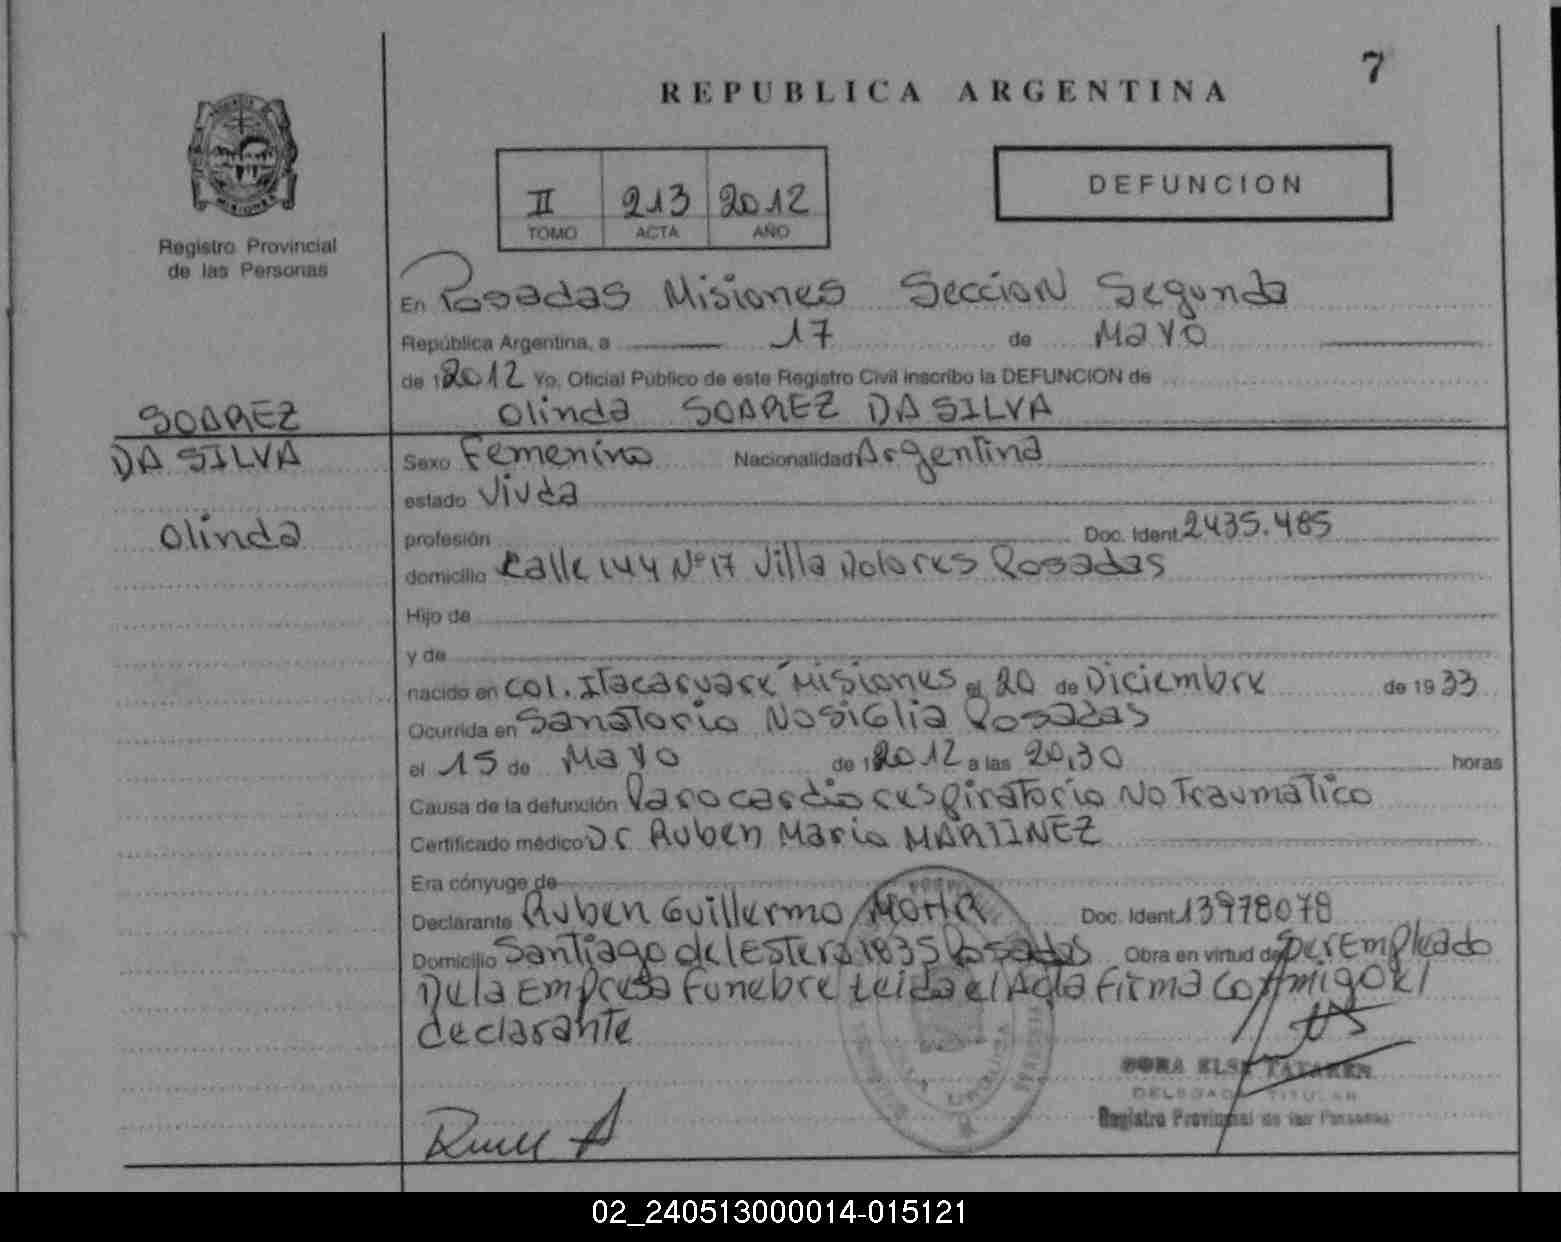 7
REPUBLICA ARGENTINA
MISIONES
Registro Provincial
de las Personas
II 213 2012
TOMO ACTA AÑO
DEFUNCION
En Posadas Misiones Seccion Segunda
República Argentina, a 17 de Mayo
de 1 2012 Yo, Oficial Público de este Registro Civil inscribo la DEFUNCION de
Olinda SOAREZ DA SILVA
SOAREZ
DA SILVA
Olinda
Sexo Femenino Nacionalidad Argentina
estado Viuda
profesión Doc. Ident. 2435.485
domicilio Calle 144 Nº 17 Villa Dolores Posadas
Hijo de
y de
nacido en Col. Itacaruare Misiones el 20 de Diciembre de 19 33
Ocurrida en Sanatorio Nosiglia Posadas
el 15 de Mayo de 1 2012 a las 20,30 horas
Causa de la defunción Paro cardio respiratorio No Traumatico
Certificado médico Dr Ruben Mario MARTINEZ
Era cónyuge de
Declarante Ruben Guillermo Doc. Ident. 13978078
Domicilio Santiago del Estero 1835 Posadas Obra en virtud de Ser Empleado
De la Empresa Funebre Leida el Acta Firma Conmigo El
declarante
DELEGADA TITULAR
Registro Provincial de las Personas
02_240513000014-015121